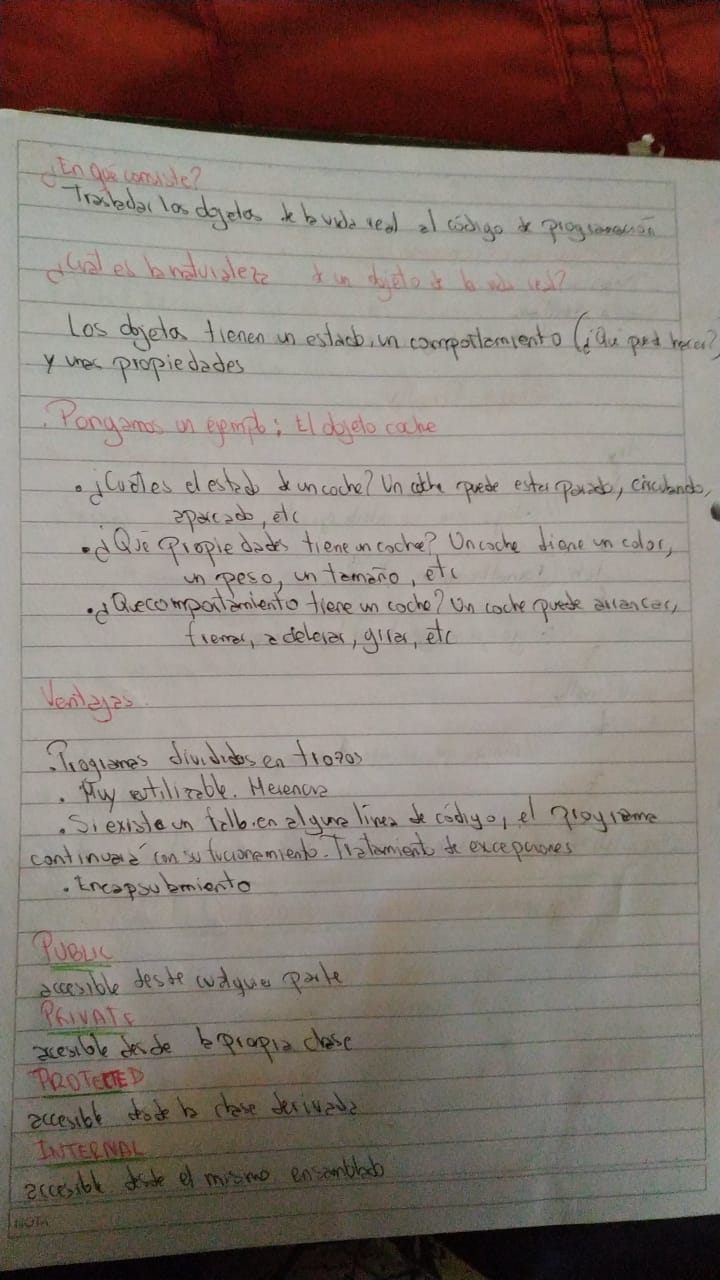 ¿En que consiste?
Trasladar los objetos de la vida real al código de programación
¿Cuál es la naturaleza de un objeto de la vida real?
Los objetos tienen un estado, un comportamiento (¿Qué pued hacer?)
y unas propiedades
. Pongamos un ejemplo: El objeto coche
• ¿Cuál es el estado de un coche? Un coche puede estar parado, circulando,
aparcado, etc
• ¿Qué propiedades tiene un coche? Un coche tiene un color,
un peso, un tamaño, etc
• ¿Que comportamiento tiene un coche? Un coche puede arrancar,
frenar, acelerar, girar, etc
Ventajas
. Programas divididos en trozos
. Muy Herencia
. Si existe un fallo en alguna línea de código, el programa
continuará con su fucionamiento. Tratamiento de excepciones
. Encapsulamiento
PUBLIC
accesible desde cualquier parte
PRIVATE
accesible desde la propia clase
PROTECTED
accesible desde la clase derivada
INTERNAL
accesible desde el mismo ensamblado
NOTA